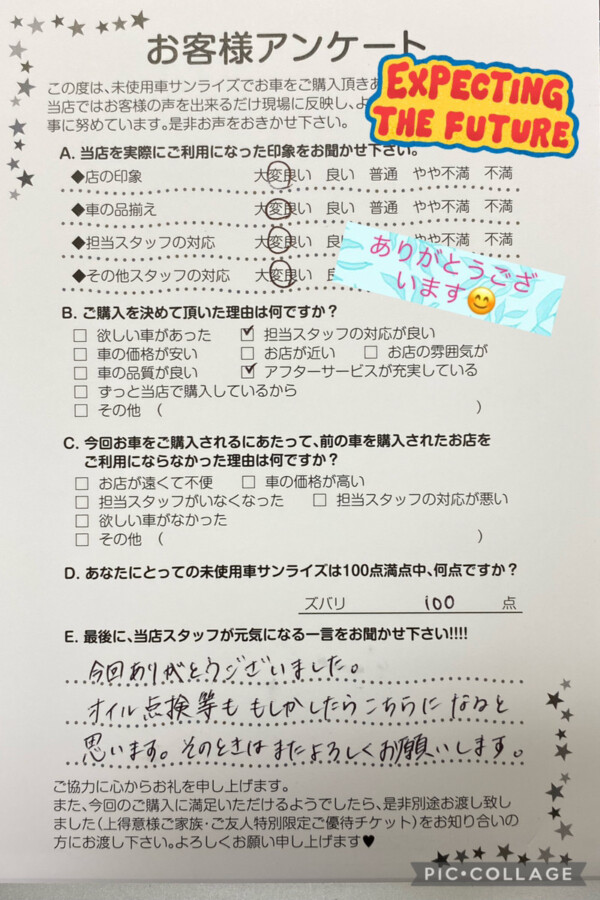 お客様アンケート
この度は、未使用車サンライズでお車をご購入頂きあ
当店ではお客様の声を出来るだけ現場に反映し、よ
事に努めています。是非お声をおきかせ下さい。
EXPECTING
THE FUTURE
A. 当店を実際にご利用になった印象をお聞かせ下さい。
◆店の印象 大変良い 良い 普通 やや不満 不満
◆車の品揃え 大変良い 良い 普通 やや不満 不満
◆担当スタッフの対応 大変良い 良い やや不満 不満
◆その他スタッフの対応 大変良い
ありがとうござ
います😊
B. ご購入を決めて頂いた理由は何ですか?
□ 欲しい車があった ☑ 担当スタッフの対応が良い
□ 車の価格が安い □ お店が近い □ お店の雰囲気が
□ 車の品質が良い ☑ アフターサービスが充実している
□ ずっと当店で購入しているから
□ その他 ( )
C. 今回お車をご購入されるにあたって、前の車を購入されたお店を
ご利用にならなかった理由は何ですか?
□ お店が遠くて不便 □ 車の価格が高い
□ 担当スタッフがいなくなった □ 担当スタッフの対応が悪い
□ 欲しい車がなかった
□ その他 ( )
D. あなたにとっての未使用車サンライズは100点満点中、何点ですか?
ズバリ 100 点
E. 最後に、当店スタッフが元気になる一言をお聞かせ下さい!!!!
今回ありがとうございました。
オイル点検等ももしかしたらこちらになると
思います。そのときはまたよろしくお願いします。
ご協力に心からお礼を申し上げます。
また、今回のご購入に満足いただけるようでしたら、是非別途お渡し致し
ました(上得意様ご家族・ご友人特別限定ご優待チケット)をお知り合いの
方にお渡し下さい。よろしくお願い申し上げます♥
PIC•COLLAGE